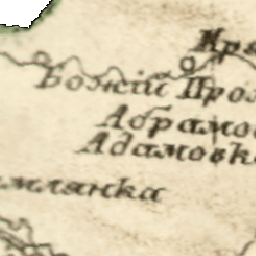 Кря
Божій Пром
Абрамов
Адамовк
млянка